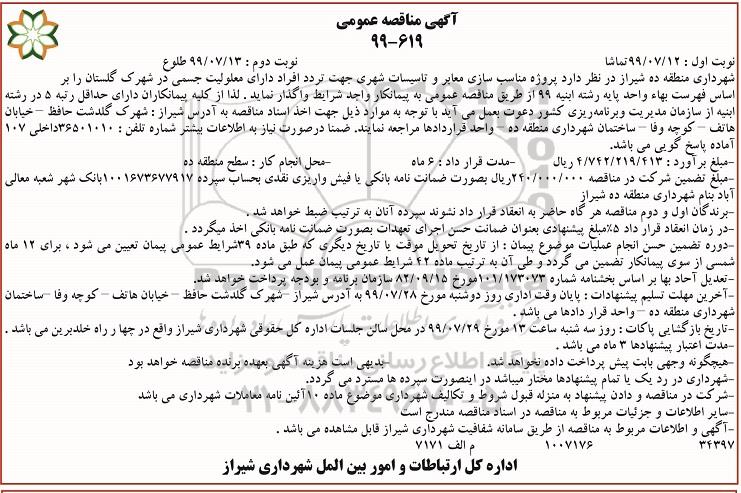 آگهی مناقصه عمومی
۹۹-۶۱۹
نوبت اول : ۹۹/۰۷/۱۲تماشا نوبت دوم : ۹۹/۰۷/۱۳ طلوع
شهرداری منطقه ده شیراز در نظر دارد پروژه مناسب سازی معابر و تاسیسات شهری جهت تردد افراد دارای معلولیت جسمی در شهرک گلستان را بر
اساس فهرست بهاء واحد پایه رشته ابنیه ۹۹ از طریق مناقصه عمومی به پیمانکار واجد شرایط واگذار نماید . لذا از کلیه پیمانکاران دارای حداقل رتبه ۵ در رشته
ابنیه از سازمان مدیریت وبرنامه‌ریزی کشور دعوت بعمل می آید با توجه به موارد ذیل جهت اخذ اسناد مناقصه به آدرس شیراز : شهرک گلدشت حافظ –خیابان
هاتف – کوچه وفا – ساختمان شهرداری منطقه ده – واحد قراردادها مراجعه نمایند. ضمنا درصورت نیاز به اطلاعات بیشتر شماره تلفن : ۳۶۵۰۱۰۱۰داخلی ۱۰۷
آماده پاسخ گویی می باشد.
-مبلغ برآورد : ۴/۷۴۲/۲۱۹/۴۱۳ ریال -مدت قرار داد : ۶ ماه -محل انجام کار : سطح منطقه ده
-مبلغ تضمین شرکت در مناقصه ۲۴۰/۰۰۰/۰۰۰ریال بصورت ضمانت نامه بانکی یا فیش واریزی نقدی بحساب سپرده ۱۰۰۱۶۷۳۶۷۷۹۱۷بانک شهر شعبه معالی
آباد بنام شهرداری منطقه ده شیراز
-برندگان اول و دوم مناقصه هر گاه حاضر به انعقاد قرار داد نشوند سپرده آنان به ترتیب ضبط خواهد شد .
-در زمان انعقاد قرار داد ۵٪مبلغ پیشنهادی بعنوان ضمانت حسن اجرای تعهدات بصورت ضمانت نامه بانکی اخذ میگردد .
-دوره تضمین حسن انجام عملیات موضوع پیمان : از تاریخ تحویل موقت یا تاریخ دیگری که طبق ماده ۳۹شرایط عمومی پیمان تعیین می شود ، برای ۱۲ ماه
شمسی از سوی پیمانکار تضمین می گردد و طی آن به ترتیب ماده ۴۲ شرایط عمومی پیمان عمل می شود.
-تعدیل آحاد بها بر اساس بخشنامه شماره ۱۰۱/۱۷۳۰۷۳مورخ ۸۲/۰۹/۱۵ سازمان برنامه و بودجه پرداخت خواهد شد.
-آخرین مهلت تسلیم پیشنهادات : پایان وقت اداری روز دوشنبه مورخ ۹۹/۰۷/۲۸ به آدرس شیراز –شهرک گلدشت حافظ – خیابان هاتف – کوچه وفا –ساختمان
شهرداری منطقه ده – واحد قرار دادها می باشد .
-تاریخ بازگشایی پاکات : روز سه شنبه ساعت ۱۳ مورخ ۹۹/۰۷/۲۹ در محل سالن جلسات اداره کل حقوقی شهرداری شیراز واقع در چها ر راه خلدبرین می باشد .
-مدت اعتبار پیشنهادها ۳ ماه می باشد .
-هیچگونه وجهی بابت پیش پرداخت داده نخواهد شد. -بدیهی است هزینه آگهی بعهده برنده مناقصه خواهد بود
-شهرداری در رد یک یا تمام پیشنهادها مختار میباشد در اینصورت سپرده ها مسترد می گردد.
-شرکت در مناقصه و دادن پیشنهاد به منزله قبول شروط و تکالیف شهرداری موضوع ماده ۱۰آئین نامه معاملات شهرداری می باشد
-سایر اطلاعات و جزئیات مربوط به مناقصه در اسناد مناقصه مندرج است
-آگهی و اطلاعات مربوط به مناقصه از طریق سامانه شفافیت شهرداری شیراز قابل مشاهده می باشد .
۳۴۳۹۷ ۱۰۰۷۱۷۶ م الف ۷۱۷۱
اداره کل ارتباطات و امور بین الملل شهرداری شیراز